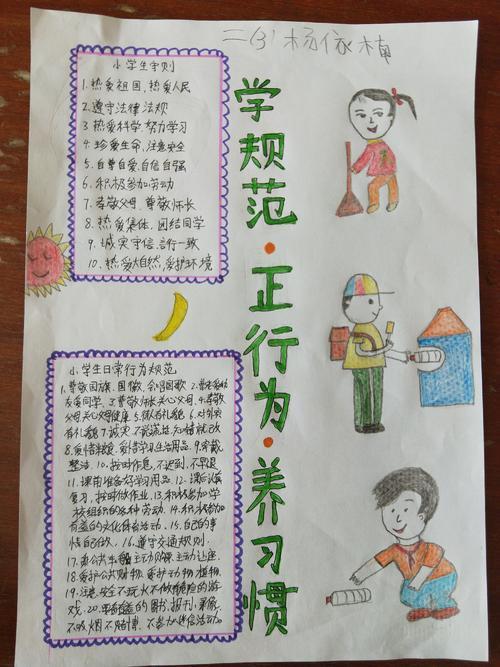 二(3)杨依楠
小学生守则
1.热爱祖国,热爱人民
2.遵守法律法规
3.热爱科学,努力学习
4.珍爱生命,注意安全
5.自尊自爱,自信自强
6.积极参加劳动
7.孝敬父母,尊敬师长
8.热爱集体,团结同学
9.诚实守信,言行一致
10.热爱大自然,爱护环境
学规范·正行为·养习惯
小学生日常行为规范
1.尊敬国旗、国徽,会唱国歌 2.
友爱同学 3.尊敬师长关心父母、4.孝敬
父母关心父母健康 5.微有礼貌 6.对别
有礼貌 7.诚实不说谎话、知错就改
8.爱惜粮食、爱惜学习生活用品、9.穿戴
整洁、10.按时作息,不迟到、不早退
11.课前准备好学习用品、12.课后认真
复习,按时做作业、13.积极参加学
校组织的各种劳动、14.积极参加
有益的文化体育活动、15.自己的事
情自己做、16.遵守交通规则、
17.乘公共车主动购票,主动让座、
18.爱护公共财物、爱护动物、植物、
19.注意安全不玩火不做危险的游
戏、20.有益的图书、报刊、录像、
不吸烟不赌博、不参加迷信活动